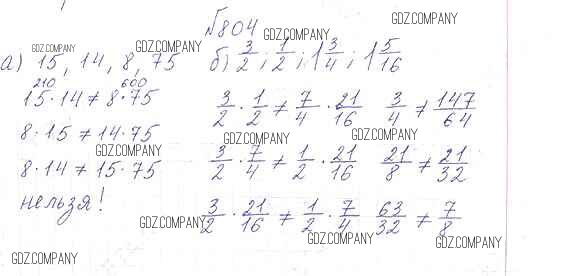 №804
а) 15, 14, 8, 75
210 600
15·14 ≠ 8·75
8·15 ≠ 14·75
8·14 ≠ 15·75
нельзя!
б) 3/2 ; 1/2 ; 1 3/4 ; 1 5/16
3/2 · 1/2 ≠ 7/4 · 21/16 3/4 ≠ 147/64
3/2 · 7/4 ≠ 1/2 · 21/16 21/8 ≠ 21/32
3/2 · 21/16 ≠ 1/2 · 7/4 63/32 ≠ 7/8
GDZ.COMPANY
GDZ.COMPANY
GDZ.COMPANY
GDZ.COMPANY
GDZ.COMPANY
GDZ.COMPANY
GDZ.COMPANY
GDZ.COMPANY
GDZ.COMPANY
GDZ.COMPANY
GDZ.COMPANY
GDZ.COMPANY